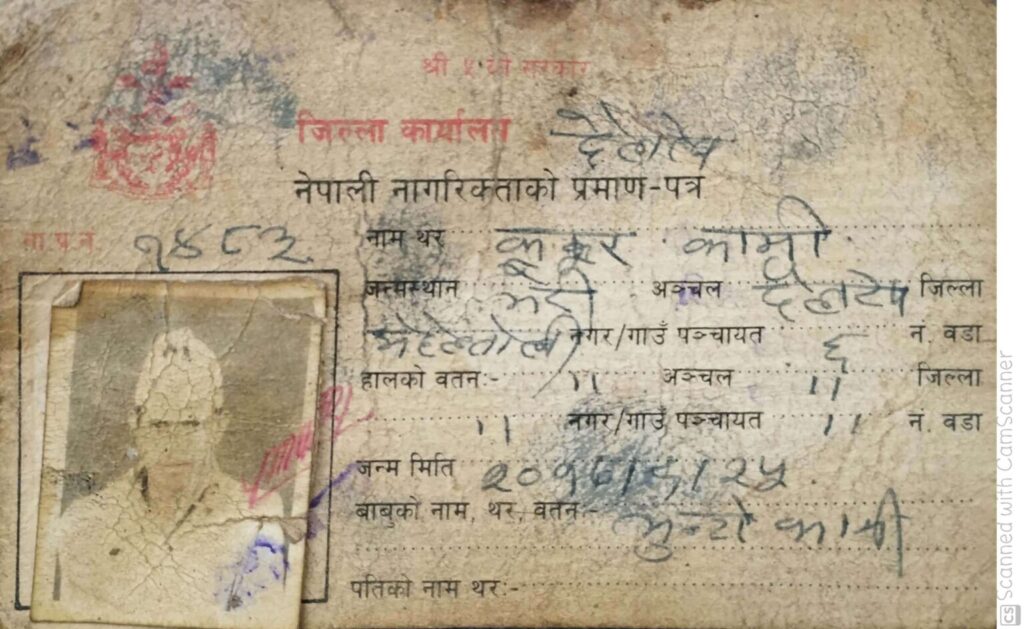 श्री ५ को सरकार
जिल्ला कार्यालय दैलेख
नेपाली नागरिकताको प्रमाण-पत्र
ना.प.न. १४८३
नाम थर कामी
जन्मस्थान भेरी अञ्चल दैलेख जिल्ला
नगर/गाउँ पञ्चायत ६ नं. वडा
हालको वतन:- '' अञ्चल '' जिल्ला
'' नगर/गाउँ पञ्चायत '' नं. वडा
जन्म मिति
बाबुको नाम, थर, वतन:- कामी
पतिको नाम थर:-
Scanned with CamScanner
CS